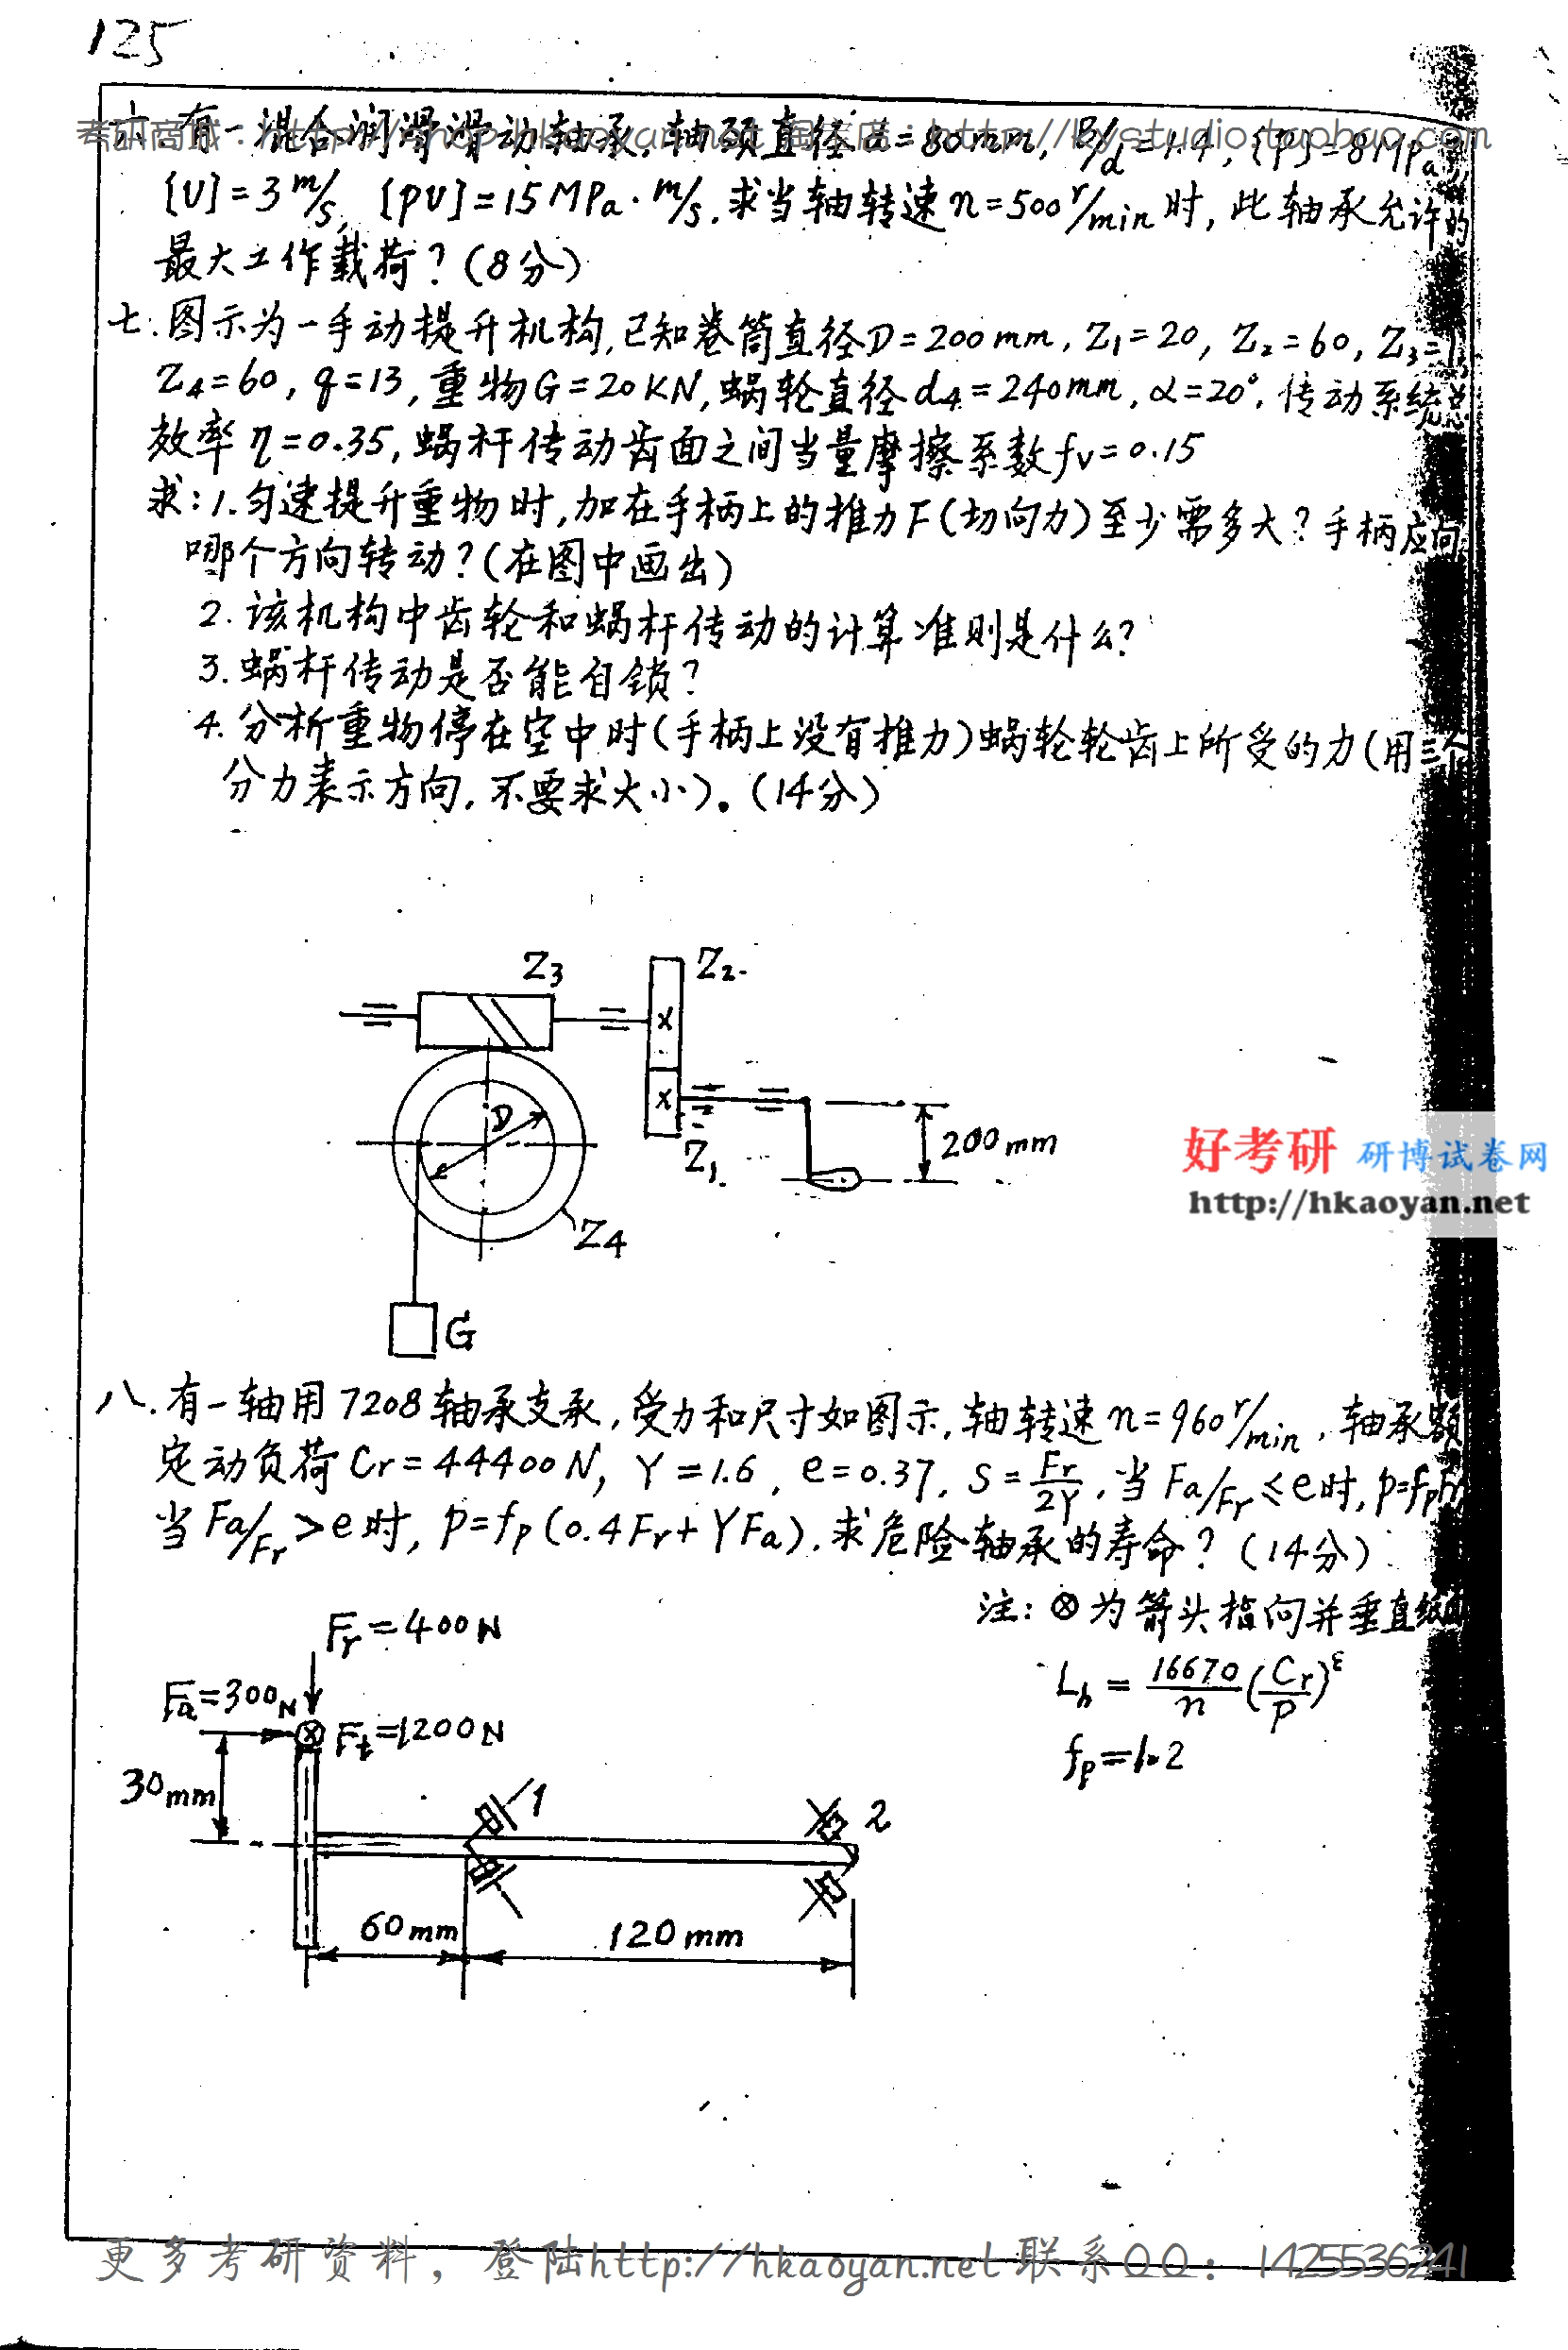 125
六.有一混合润滑滑动轴承,轴颈直径d=80mm, B/d=1.4, [P]=8MPa
考研商城:http://shop.hkaoyan.net 淘宝店:http://kystudio.taobao.com
[U]=3m/s, [PU]=15MPa·m/s.求当轴转速n=500r/min时,此轴承允许的
最大工作载荷?(8分)
七.图示为一手动提升机构,已知卷筒直径D=200mm, Z1=20, Z2=60, Z3=1,
Z4=60, q=13,重物G=20KN,蜗轮直径d4=240mm, α=20°,传动系统总
效率η=0.35,蜗杆传动齿面之间当量摩擦系数fv=0.15
求:1.匀速提升重物时,加在手柄上的推力F(切向力)至少需多大?手柄应向
哪个方向转动?(在图中画出)
2.该机构中齿轮和蜗杆传动的计算准则是什么?
3.蜗杆传动是否能自锁?
4.分析重物停在空中时(手柄上没有推力)蜗轮轮齿上所受的力(用三个
分力表示方向,不要求大小)。(14分)
Z3
Z2
D
Z1
200mm
Z4
G
好考研 研博试卷网
http://hkaoyan.net
八.有一轴用7208轴承支承,受力和尺寸如图示,轴转速n=960r/min,轴承额
定动负荷Cr=44400N, Y=1.6, e=0.37, S=Fr/2Y,当Fa/Fr≤e时, P=fpFr
当Fa/Fr>e时, P=fp(0.4Fr+YFa).求危险轴承的寿命?(14分)
注:⊗为箭头指向并垂直纸面
Fr=400N
Lh=16670/n(Cr/P)^ε
Fa=300N
Ft=1200N
fp=1.2
30mm
1
2
60mm
120mm
更多考研资料,登陆http://hkaoyan.net 联系QQ:1425536241